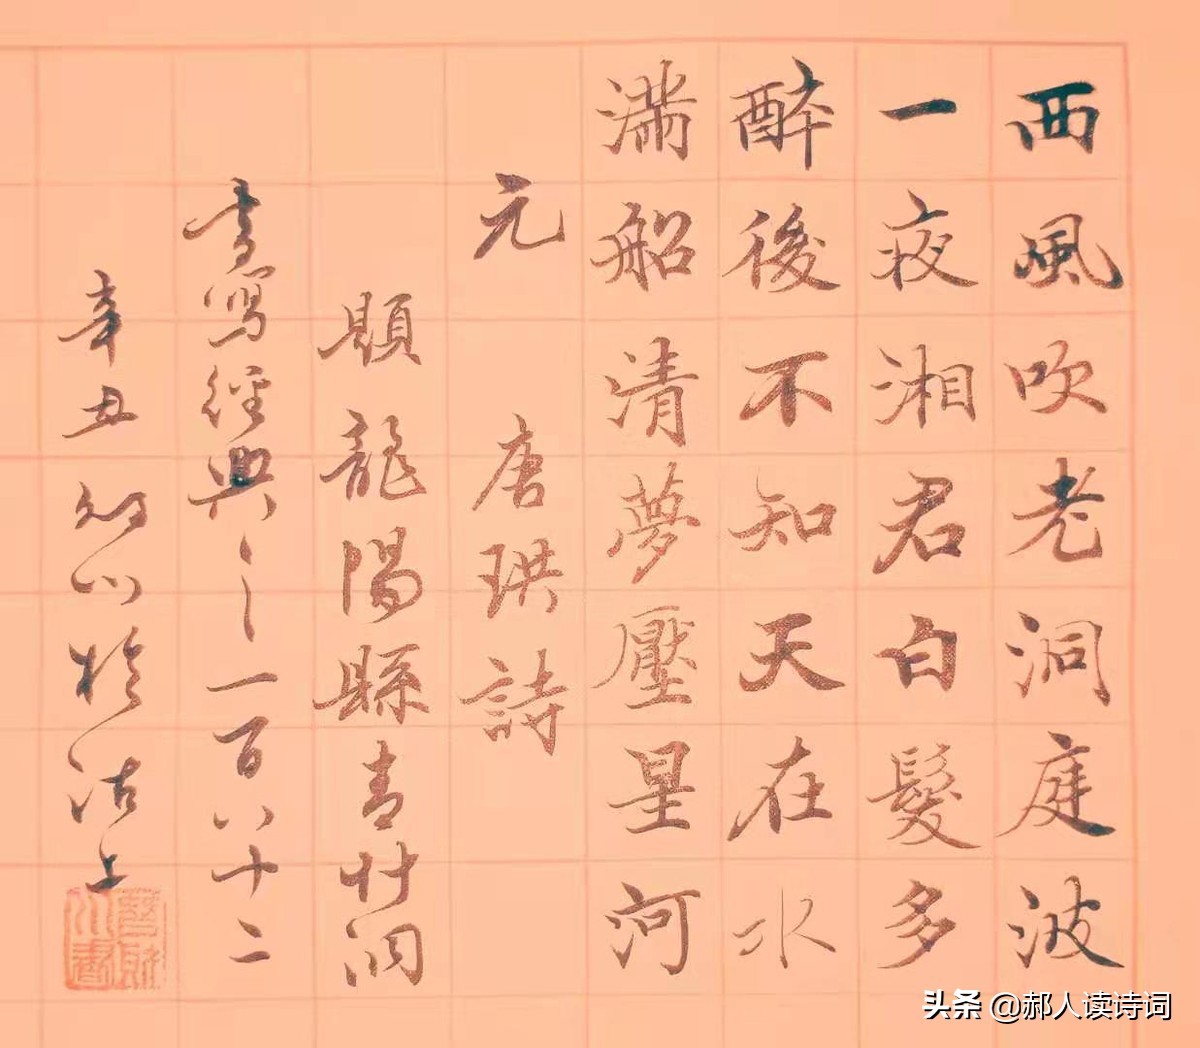 西風吹老洞庭波
一夜湘君白髮多
醉後不知天在水
滿船清夢壓星河
元 唐珙詩
題龍陽縣青艸
書寫經典之一百八十二
辛丑於沽上
头条 @郝人读诗词